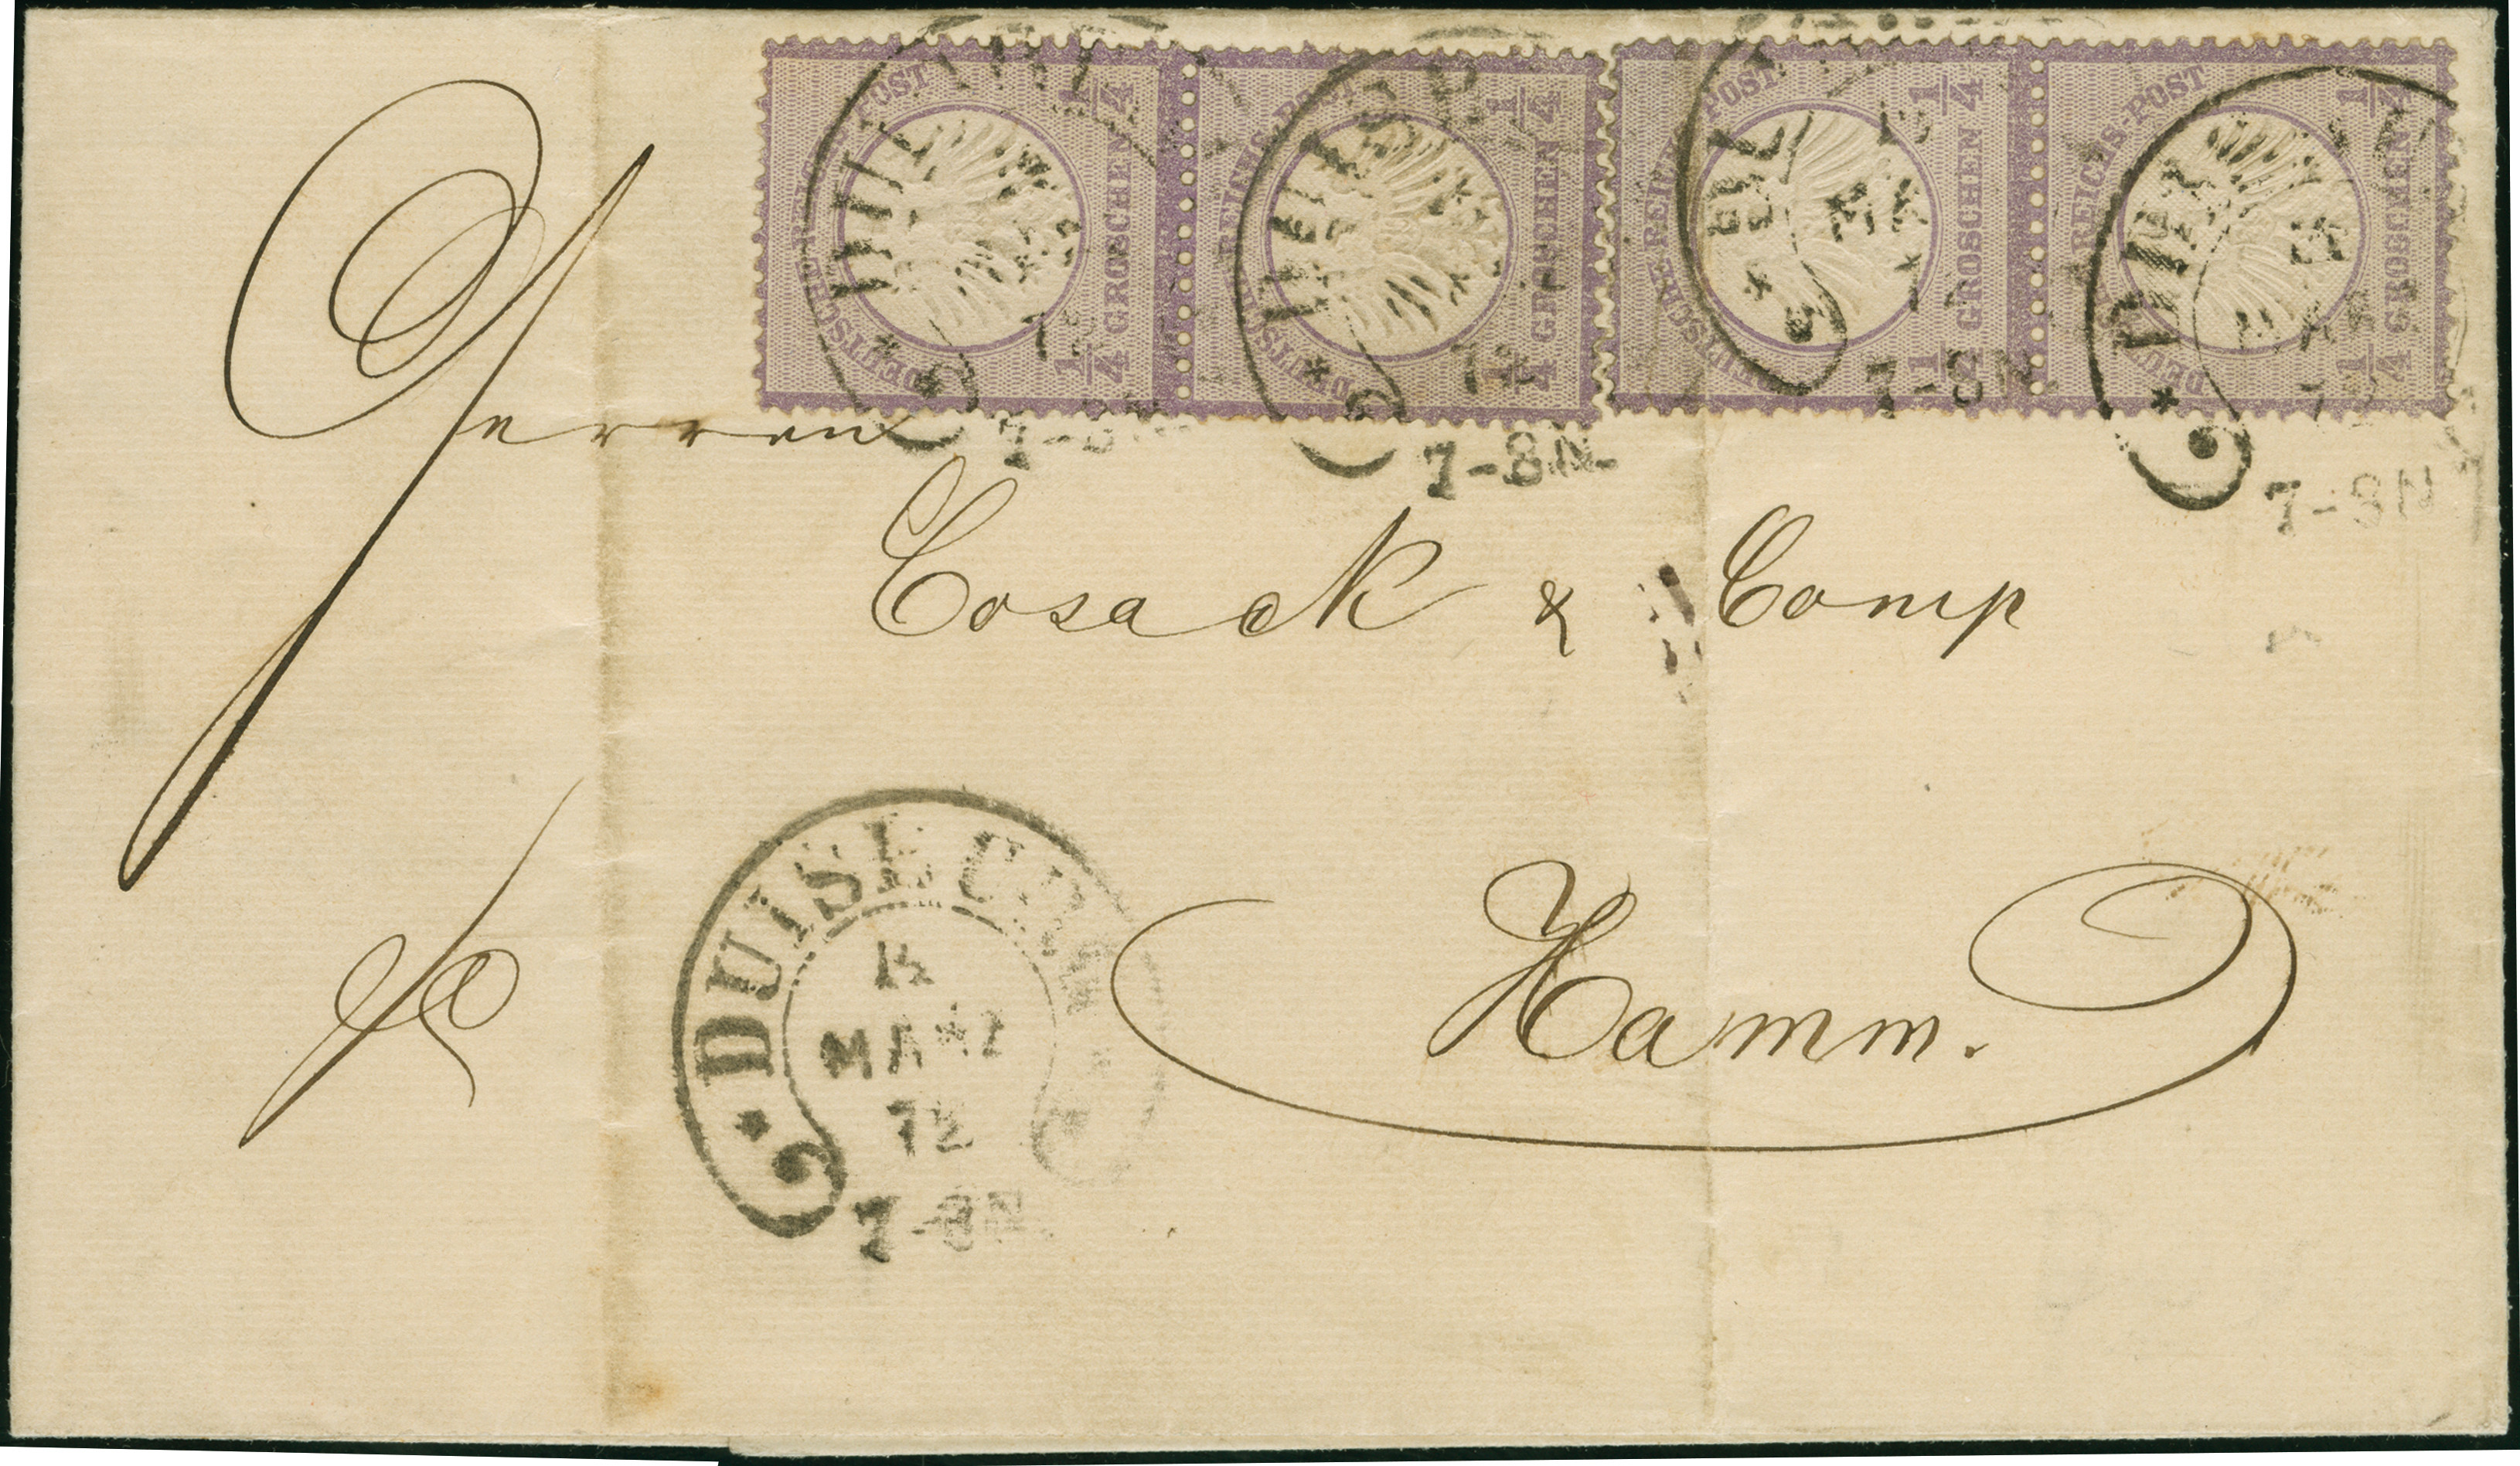 DEUTSCHE REICHS-POST
1/4 GROSCHEN 1/4
DEUTSCHE REICHS-POST
1/4 GROSCHEN 1/4
DEUTSCHE REICHS-POST
1/4 GROSCHEN 1/4
DEUTSCHE REICHS-POST
1/4 GROSCHEN 1/4
7-8N.
7-8N.
7-8N.
7-8N
Herren
Cosack & Comp
Hamm.
DUISBURG
MÄRZ
72
7-8N